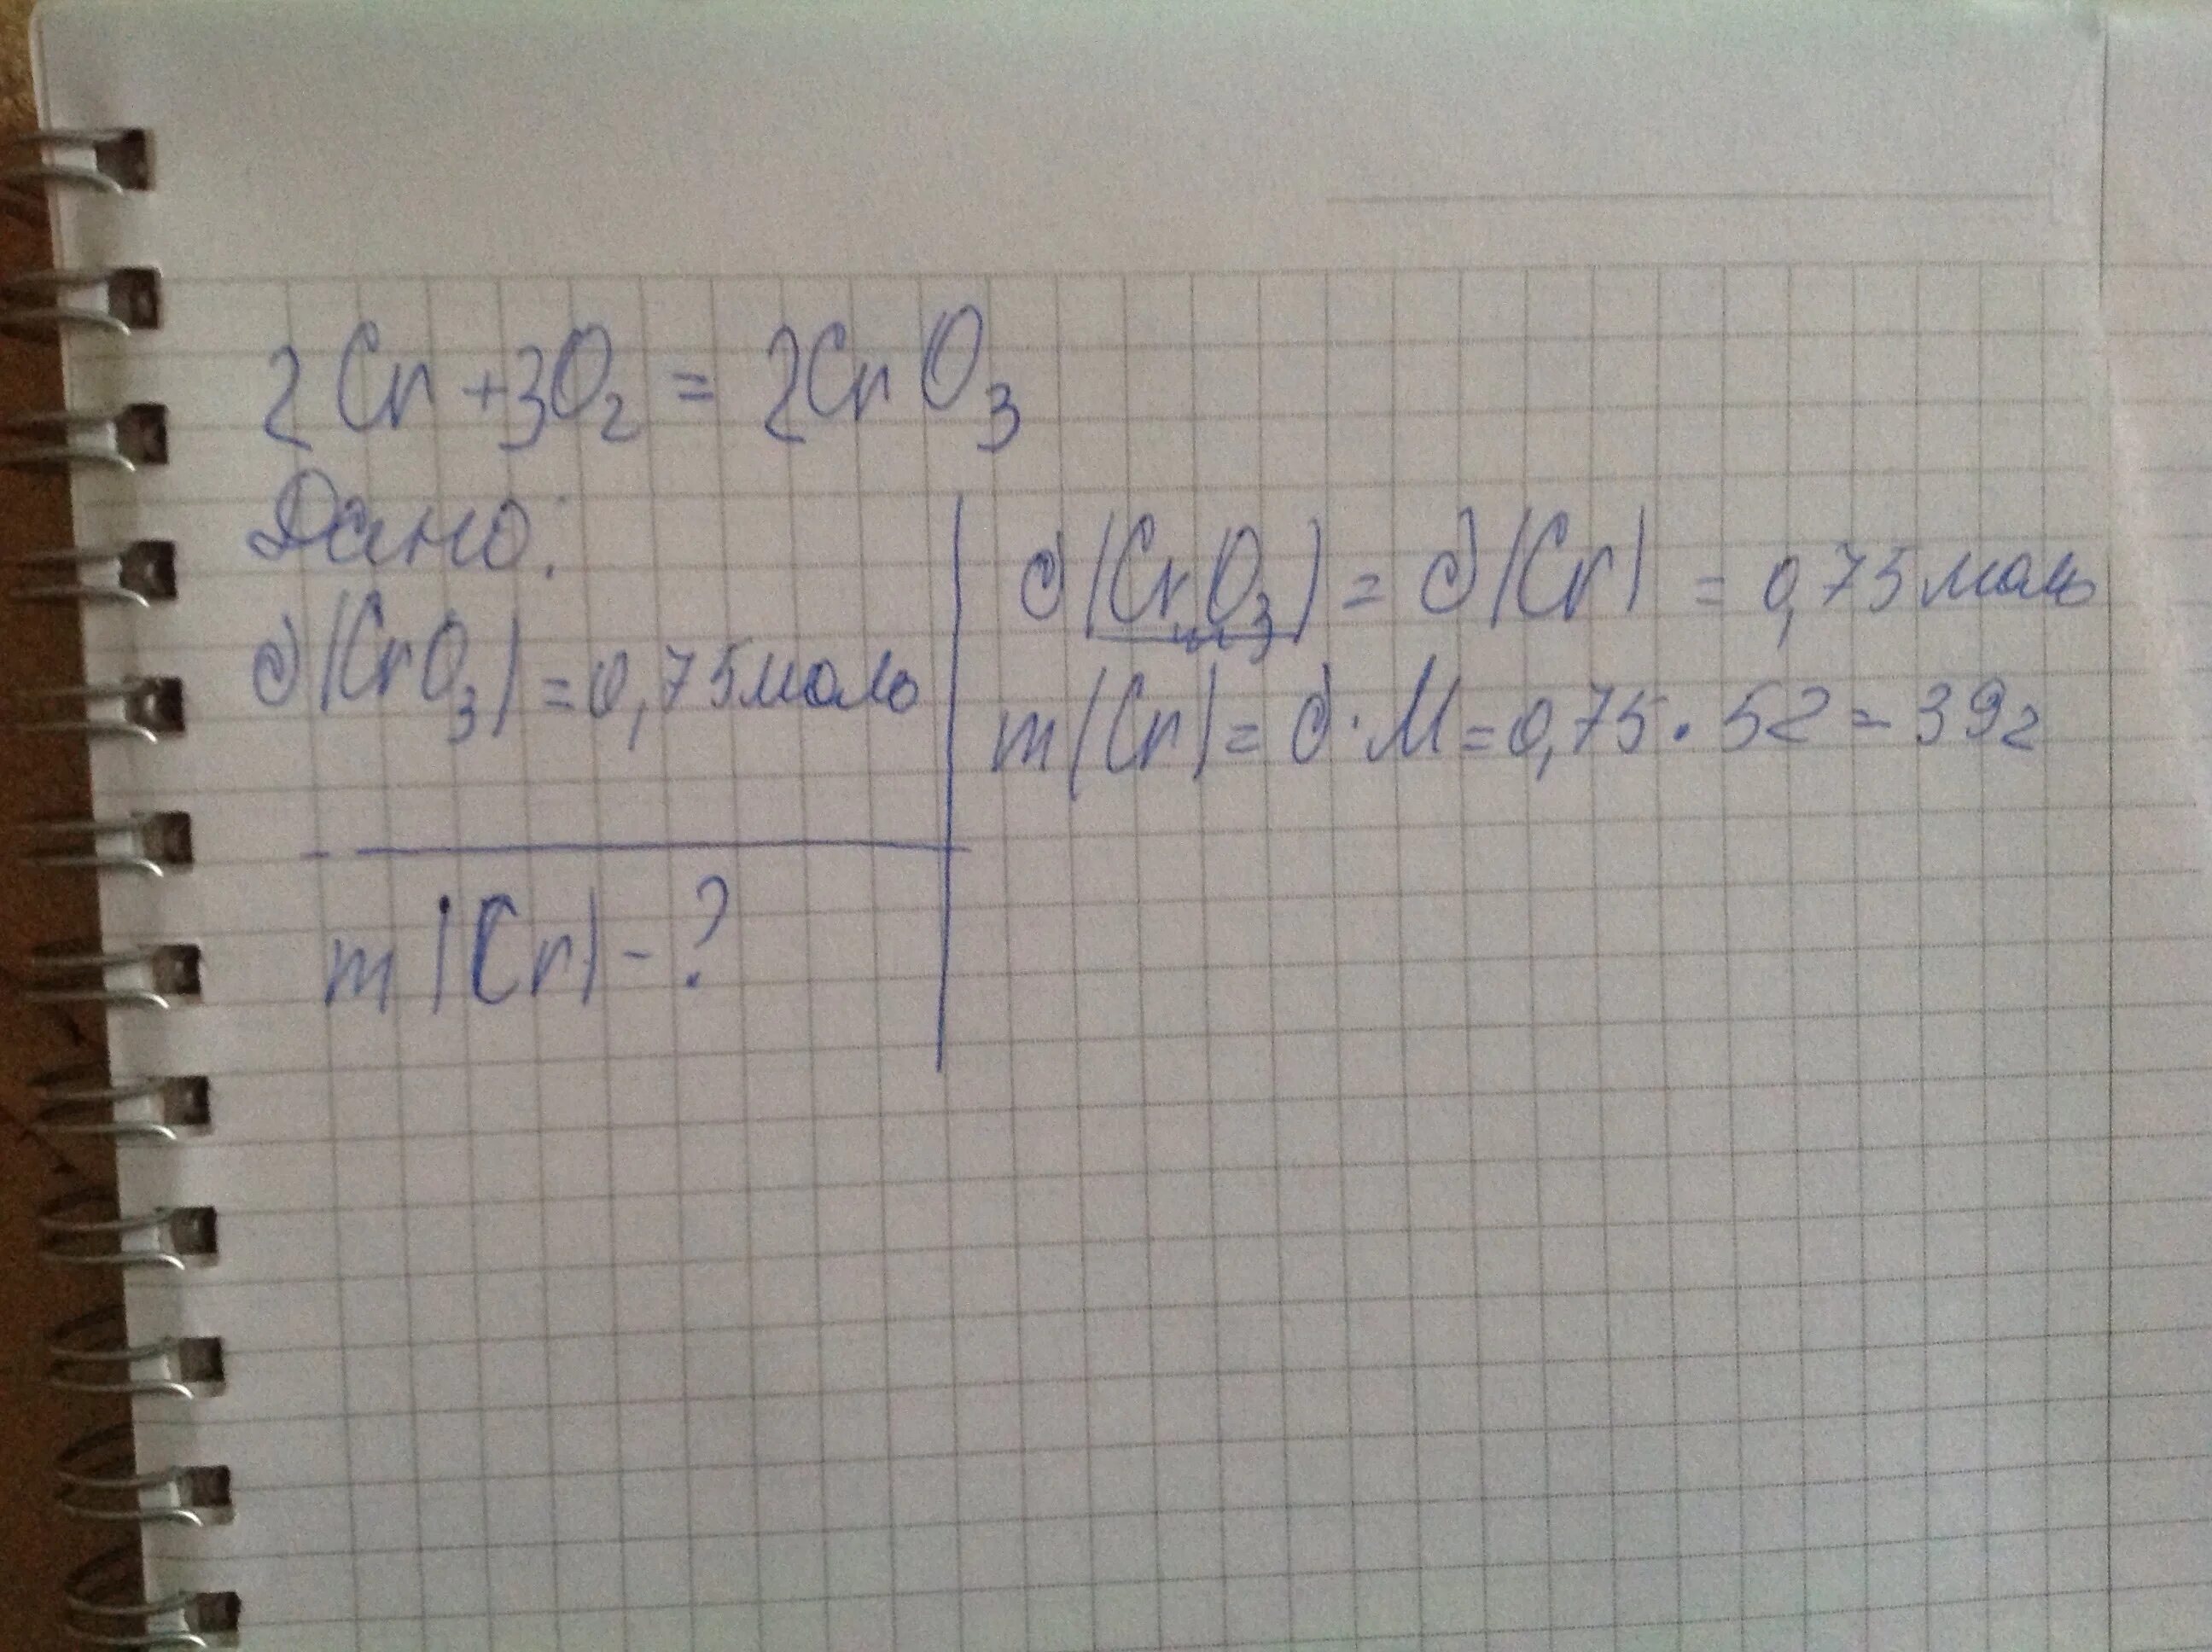 2Cr + 3O₂ = 2CrO₃
Дано:
∂(CrO₃) = 0,75моль
m(Cr) - ?
∂(CrO₃) = ∂(Cr) = 0,75моль
m(Cr) = ∂·M = 0,75·52 = 39г